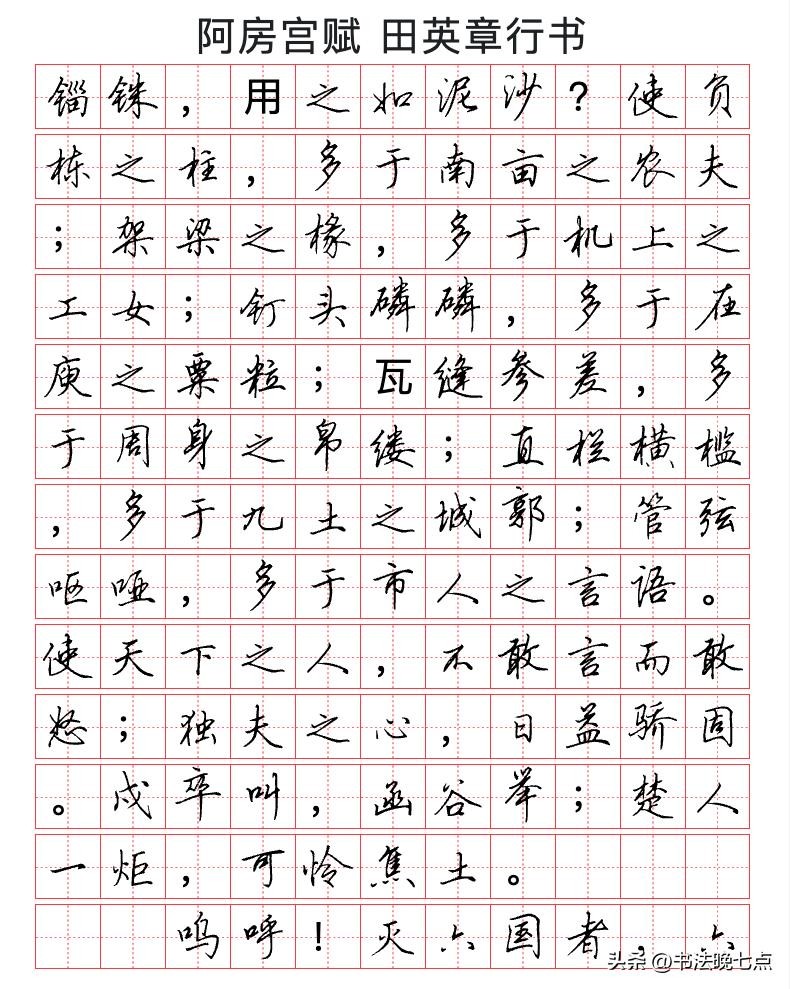 阿房宫赋 田英章行书
锱铢，用之如泥沙？使负
栋之柱，多于南亩之农夫
；架梁之椽，多于机上之
工女；钉头磷磷，多于在
庾之粟粒；瓦缝参差，多
于周身之帛缕；直栏横槛
，多于九土之城郭；管弦
呕哑，多于市人之言语。
使天下之人，不敢言而敢
怒；独夫之心，日益骄固
。戍卒叫，函谷举；楚人
一炬，可怜焦土。
呜呼！灭六国者，六
头条 @书法晚七点